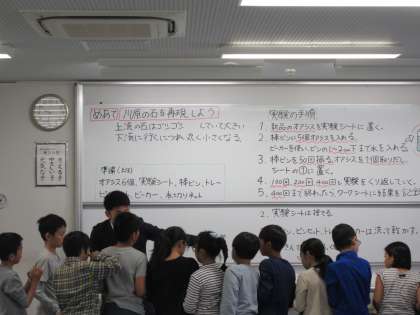 めあて 川原の石を再現しよう
上流の石はゴツゴツ していて大きい
下流に行くにつれ丸く小さくなる。
準備(各班)
オアシス6個、実験シート、棒ビン、トレー
ビーカー、水切りネット
実験の手順
1. 新品のオアシスを実験シートに置く。
2. 棒ビンに5個オアシスを入れる。
ビーカーを使い、ビンの1~2cm下まで水を入れる。
3. 棒ビンを50回振る。オアシスを1個取りだし、
シートの①に置く。
4. 100回、200回、400回と実験をくり返していく。
5. 400まで終わったら、ワークシートに結果を
2. 実験シートは捨てる。
ビン、ピンセット、トレーは洗って乾かす。